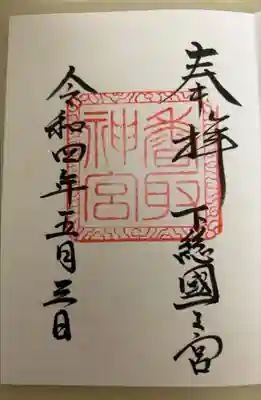 奉拝
下総國一之宮
香取神宮
令和四年五月三日